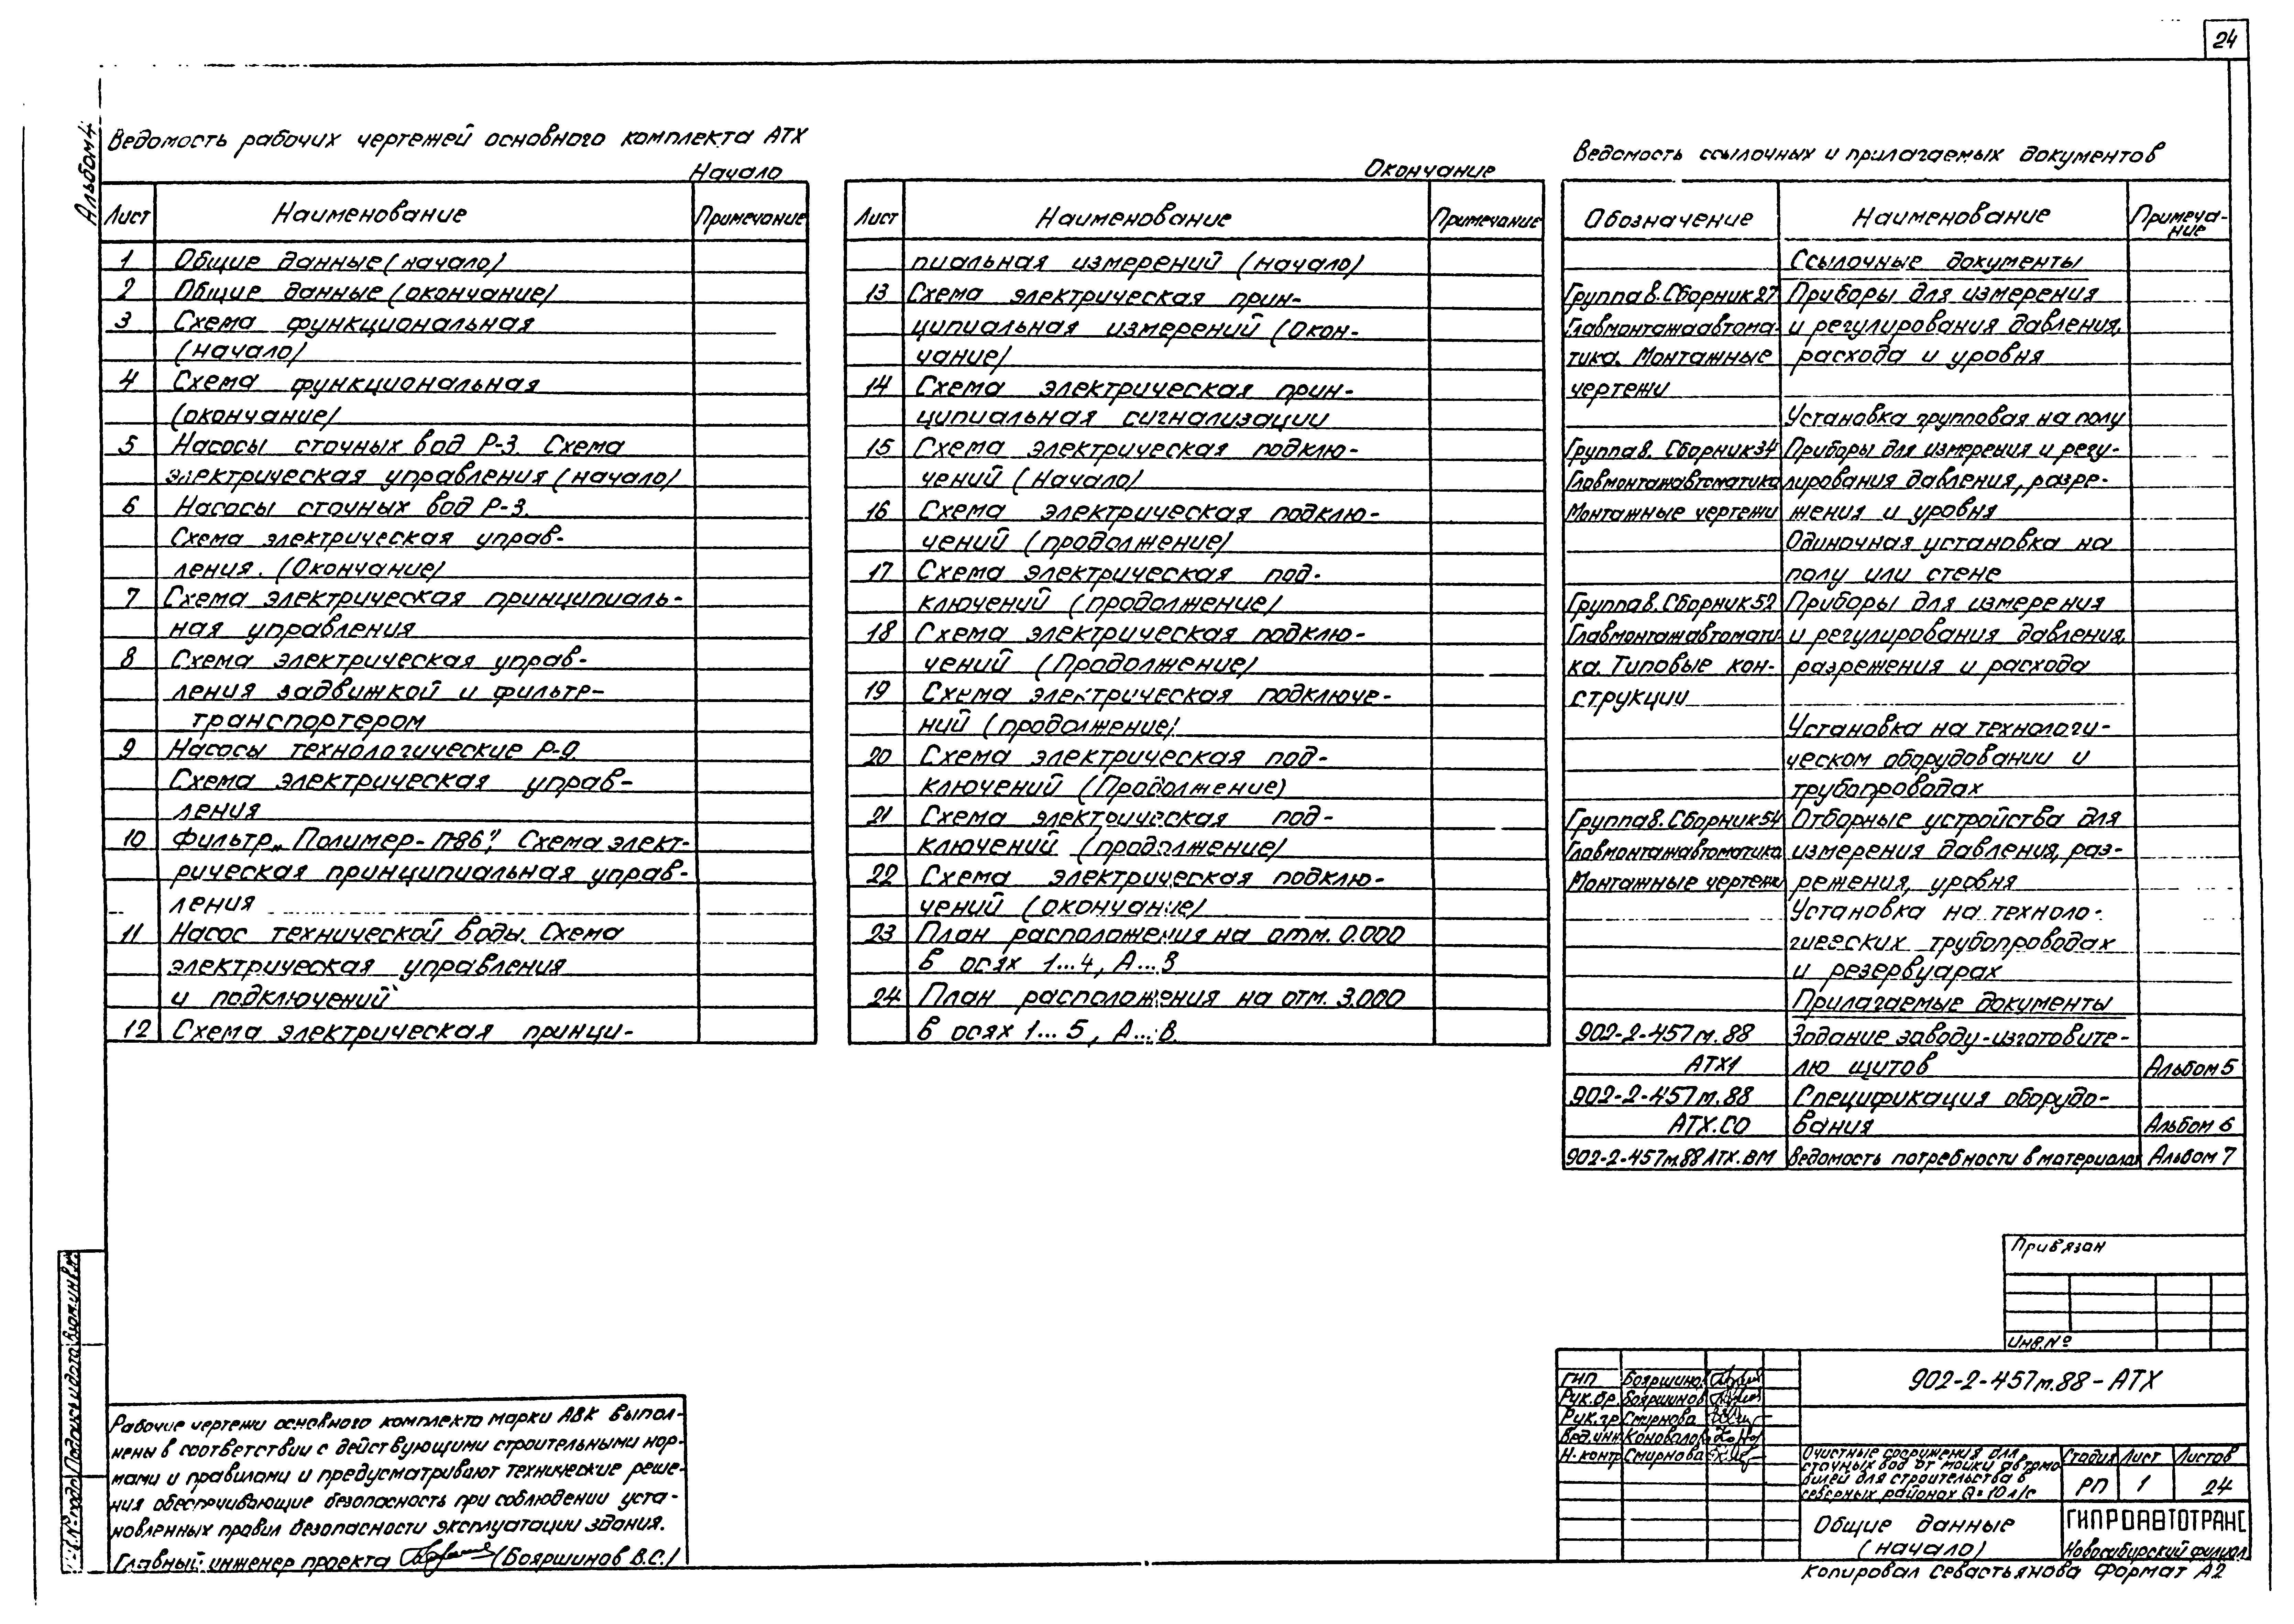 24
Альбом 4
Ведомость рабочих чертежей основного комплекта АТХ
Начало
Лист Наименование Примечание
1 Общие данные (начало)
2 Общие данные (окончание)
3 Схема функциональная
(начало)
4 Схема функциональная
(окончание)
5 Насосы сточных вод Р-3. Схема
электрическая управления (начало)
6 Насосы сточных вод Р-3.
Схема электрическая управ-
ления. (Окончание)
7 Схема электрическая принципиаль-
ная управления
8 Схема электрическая управ-
ления задвижкой и фильтр-
транспортером
9 Насосы технологические Р-9.
Схема электрическая управ-
ления
10 Фильтр „Полимер-П-86". Схема элект-
рическая принципиальная управ-
ления
11 Насос технической воды. Схема
электрическая управления
и подключений
12 Схема электрическая принци-
Окончание
Лист Наименование Примечание
пиальная измерений (начало)
13 Схема электрическая прин-
ципиальная измерений (Окон-
чание)
14 Схема электрическая прин-
ципиальная сигнализации
15 Схема электрическая подклю-
чений (Начало)
16 Схема электрическая подклю-
чений (продолжение)
17 Схема электрическая под-
ключений (продолжение)
18 Схема электрическая подклю-
чений (Продолжение)
19 Схема электрическая подключе-
ний (продолжение)
20 Схема электрическая под-
ключений (Продолжение)
21 Схема электрическая под-
ключений (продолжение)
22 Схема электрическая подклю-
чений (окончание)
23 План расположения на отм. 0.000
в осях 1...4, А...В
24 План расположения на отм. 3.000
в осях 1...5, А...В.
Ведомость ссылочных и прилагаемых документов
Обозначение Наименование Примеча-
ние
Ссылочные документы
Группа 8. Сборник 27 Приборы для измерения
Главмонтажавтома- и регулирования давления,
тика. Монтажные расхода и уровня
чертежи
Установка групповая на полу
Группа 8. Сборник 34 Приборы для измерения и регу-
Главмонтажавтоматика лирования давления, разре-
Монтажные чертежи жения и уровня
Одиночная установка на
полу или стене
Группа 8. Сборник 52 Приборы для измерения
Главмонтажавтомати- и регулирования давления,
ка. Типовые кон- разрежения и расхода
струкции
Установка на технологи-
ческом оборудовании и
трубопроводах
Группа 8. Сборник 54 Отборные устройства для
Главмонтажавтоматика измерения давления, раз-
Монтажные чертежи режения, уровня
Установка на техноло-
гических трубопроводах
и резервуарах
Прилагаемые документы
902-2-457м.88 Задание заводу-изготовите-
АТХ1 лю щитов Альбом 5
902-2-457м.88 Спецификация оборудо-
АТХ.СО вания Альбом 6
902-2-457м.88 АТХ.ВМ Ведомость потребности в материалах Альбом 7
Привязан
Инв.№
Рабочие чертежи основного комплекта марки АВК выпол-
нены в соответствии с действующими строительными нор-
мами и правилами и предусматривают технические реше-
ния обеспечивающие безопасность при соблюдении уста-
новленных правил безопасности эксплуатации здания.
Главный инженер проекта (Бояршинов В.С.)
ГИП Бояршинов
Рук.бр. Бояршинов
Рук.гр. Смирнова
Вед.инж Коновалов
Н.контр Смирнова
902-2-457м.88-АТХ
Очистные сооружения для
сточных вод от мойки автомо
билей для строительства в
северных районах Q=10л/с
Стадия Лист Листов
РП 1 24
Общие данные
(начало)
ГИПРОАВТОТРАНС
Новосибирский филиал
Копировал Севастьянова Формат А2
Инв.№подл Подпись и дата Взам.инв.№